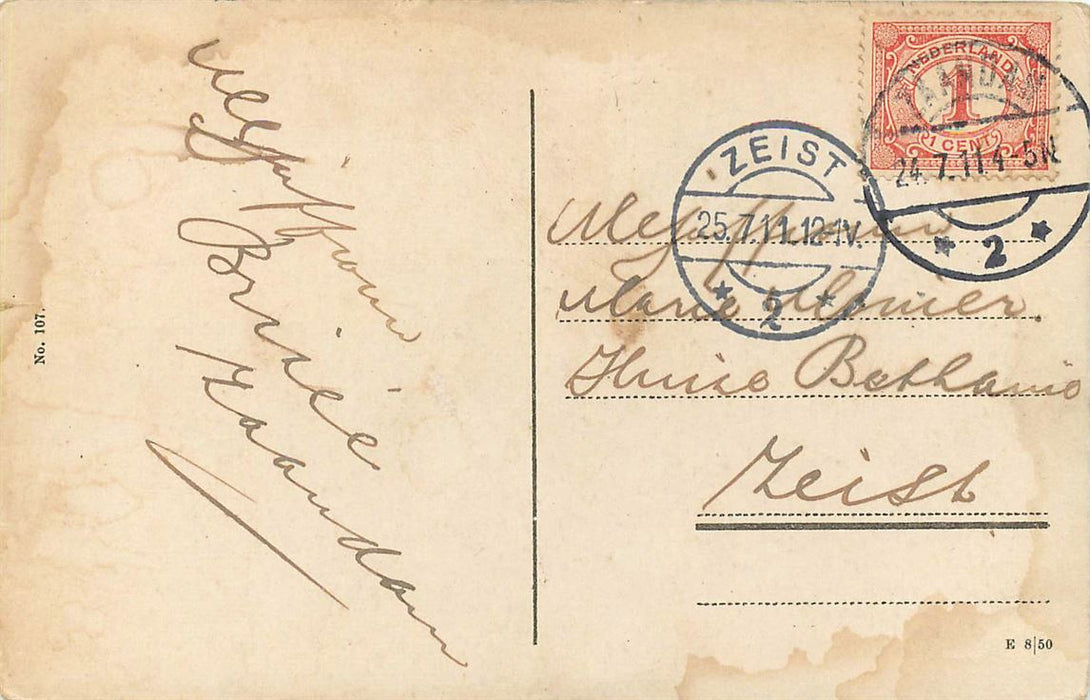 Mejuffrouw
Briséé
Zaandam
No. 107.
NEDERLAND
1
1 CENT
ZAANDAM
24.7.11 4-5N
2
ZEIST
25.7.11.12-1V.
2
Mejuffrouw
Marie
Huize Bethanië
Zeist
E 8|50